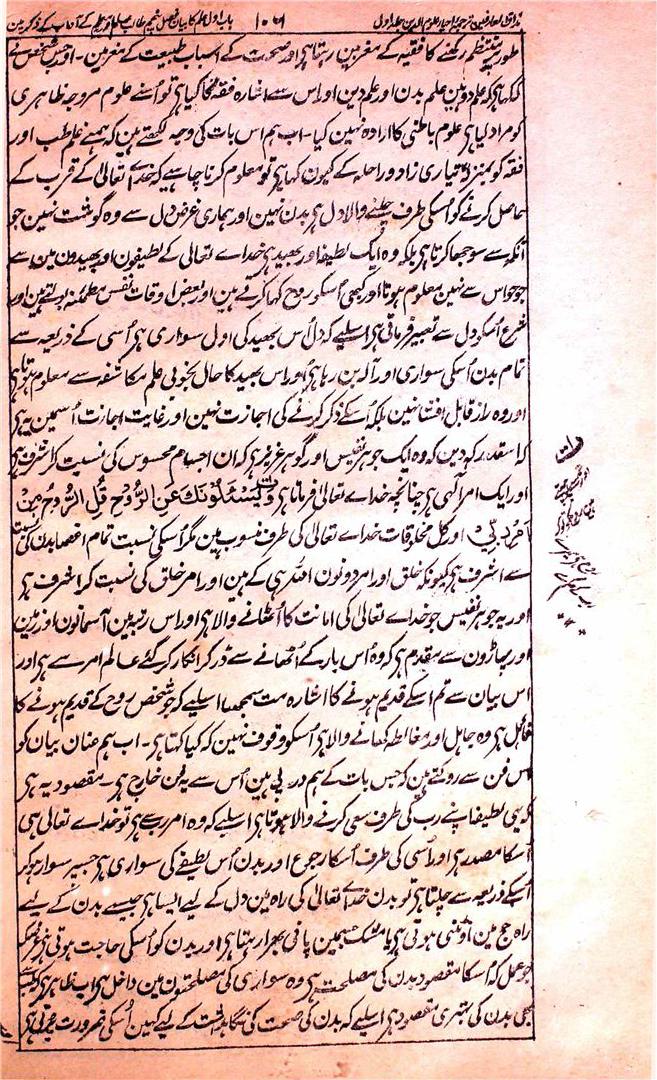 مذاق العارفین ترجمہ احیاء علوم الدین جلد اول ۱۰۶ باب اول علم کا بیان فصل پنجم طالب علم اور معلم کے آداب کے ذکر مین
طور پر منتظم رکھنے کا فقیہ کے مغز مین رہتا ہی اور صحت کے اسباب طبیعت کے مغز مین ۔ اور جس شخص نے
کہا ہی کہ علم دو ہین علم بدن اور علم دین اور اس سے اشارہ فقہ کا کیا ہی تو اُسنے علوم مروجہ ظاہری
کو مراد لیا ہی علوم باطنی کا ارادہ نہین کیا ۔ اب ہم اس بات کی وجہ لکھتے ہین کہ ہمنے علم طب اور
فقہ کو بمنزلہ تیاری زاد و راحلہ کے کیون کہا ہی تو معلوم کرنا چاہیے کہ خداے تعالیٰ کے قرب کے
حاصل کرنے کو اُسکی طرف چلنے والا دل ہی بدن نہین اور ہماری غرض دل سے وہ گوشت نہین جو
آنکھ سے سوجھا کرتا ہی بلکہ وہ ایک لطیفہ اور بھید ہی خداے تعالیٰ کے لطیفون اور بھیدون مین سے
جو حواس سے نہین معلوم ہوتا اور کبھی اُسکو روح کہا کرتے ہین اور بعض اوقات نفس مطمئنہ بولتے ہین اور
شرع اُسکو دل سے تعبیر فرماتی ہی اسلیے کہ دل اُس بھید کی اول سواری ہی اُسی کے ذریعہ سے
تمام بدن اُسکی سواری اور آلہ بن رہا ہی اور اس بھید کا حال بخوبی علم مکاشفہ سے معلوم ہوتا ہی
اور وہ راز قابل افشا نہین بلکہ اُسکے ذکر کرنے کی اجازت نہین اور غایت اجازت اُسمین یہ ہی
کہ اسقدر کہدین کہ وہ ایک جوہر نفیس اور گوہر عزیز ہی کہ ان اجسام محسوس کی نسبت کر اشرف ہی
اور ایک امر الٰہی ہی چنانچہ خداے تعالیٰ فرماتا ہی وَیَسْئَلُوْنَکَ عَنِ الرُّوْحِ قُلِ الرُّوْحُ مِنْ
اَمْرِ رَبِّیْ اور کل مخلوقات خداے تعالیٰ کی طرف منسوب ہین مگر اُسکی نسبت تمام اعضا بدن کی نسبت
سے اشرف ہی کیونکہ خلق اور امر دونون اللہ ہی کے ہین اور امر خلق کی نسبت کر اشرف ہی
اور یہ جوہر نفیس جو خداے تعالیٰ کی امانت کا اُٹھانے والا ہی اور اس رتبہ مین آسمانون اور زمین
اور پہاڑون سے مقدم ہی کہ وہ اُس بار کے اُٹھانے سے ڈر کر انکار کر گئے عالم امر سے ہی اور
اس بیان سے تم اُسکے قدیم ہونے کا اشارہ مت سمجھنا اسلیے کہ جو شخص روح کے قدیم ہونے کا
قائل ہی وہ جاہل اور مغالطہ کھانے والا ہی اُسکو وقوف نہین کہ کیا کہتا ہی ۔ اب ہم عنان بیان کو
اس فن سے روکتے ہین کہ جس بات کے ہم درپے ہین اُس سے یہ فن خارج ہی ۔ مقصود یہ ہی
کہ یہی لطیفہ اپنے رب کی طرف سعی کرنے والا ہوتا ہی اسلیے کہ وہ امر رب سے ہی تو خداے تعالیٰ ہی
اُسکا مصدر ہی اور اُسی کی طرف اُسکا رجوع اور بدن اُس لطیفے کی سواری ہی جسپر سوار ہو کر
اُسکے ذریعہ سے چلتا ہی تو بدن خداے تعالیٰ کی راہ مین دل کے لیے ایسا ہی جیسے بدن کے لیے
راہ حج مین اونٹنی ہوتی ہی یا مشک جسمین پانی بھرا رہتا ہی اور بدن کو اُسکی حاجت ہوتی ہی غرضکہ
جو عمل کہ اُسکا مقصود بدن کی مصلحت ہی وہ سواری کی مصلحتون مین داخل ہی اب ظاہر ہی کہ طب سے
بھی بدن کی بہتری مقصود ہی اسلیے کہ بدن کی صحت کی نگاہداشت کے لیے کہین اُسکی ضرورت پڑتی ہی